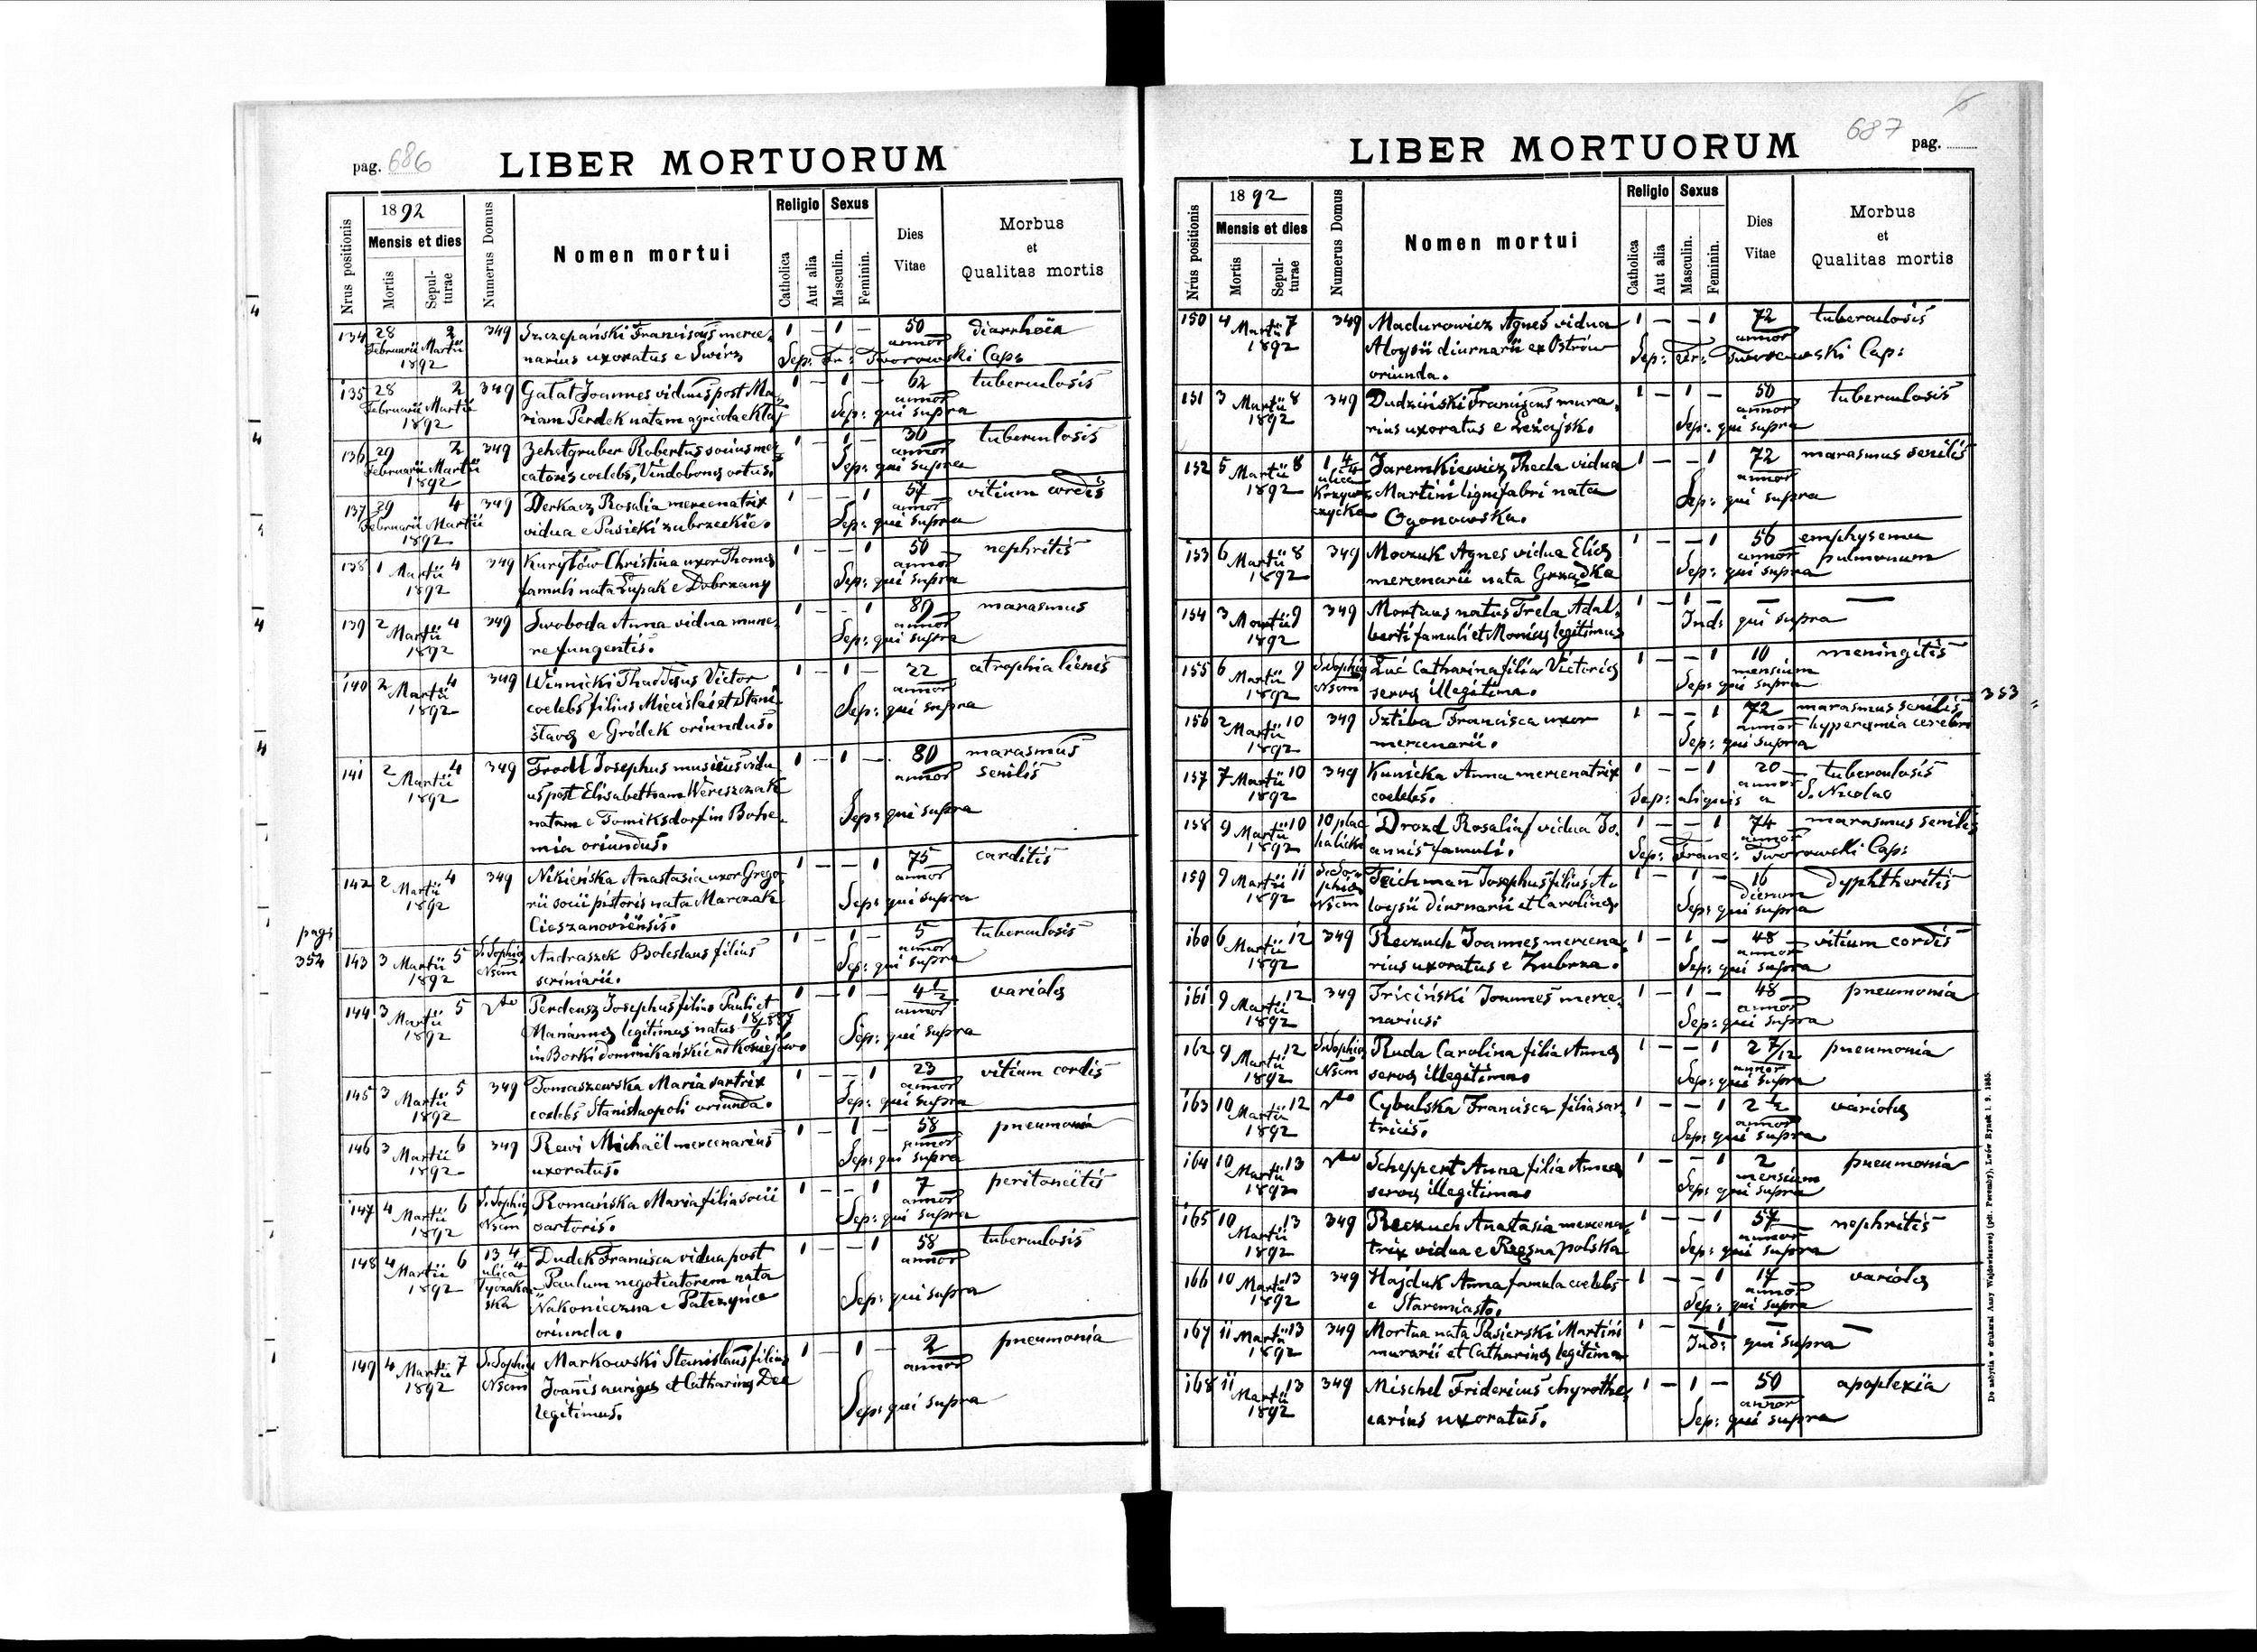 pag. 686
LIBER MORTUORUM
Nrus positionis
1892
Mensis et dies
Mortis
Sepulturae
Numerus Domus
Nomen mortui
Religio
Catholica
Aut alia
Sexus
Masculin.
Feminin.
Dies Vitae
Morbus et Qualitas mortis
134 28 Februarii 2 Martii 1892 349 Szczepański Franciscus merce- 1 — 1 — 50 annor diarrhöea
narius uxoratus e Świrz Sep: Fr: Tworowski Cap:
135 28 Februarii 2 Martii 1892 349 Gatat Joannes viduus post Ma- 1 — 1 — 62 annor tuberculosis
riam Perdek natam agricola e Kłaj Sep: qui supra
136 29 Februarii 2 Martii 1892 349 Zehetgruber Robertus socius mer- 1 — 1 — 30 annor tuberculosis
catoris coelebs, Vindobona ortus. Sep: qui supra
137 29 Februarii 4 Martii 1892 349 Derkacz Rosalia mercenatrix 1 — — 1 57 annor vitium cordis
vidua e Pasieki zubrzeckie. Sep: qui supra
138 1 Martii 4 1892 349 Kuryłów Christina uxor Thomæ 1 — — 1 50 annor nephritis
famuli nata Łupak e Dobrzany Sep: qui supra
139 2 Martii 4 1892 349 Swoboda Anna vidua mune- 1 — — 1 89 annor marasmus
re fungentis. Sep: qui supra
140 2 Martii 4 1892 349 Winnicki Thaddæus Victor 1 — 1 — 22 annor atrophia lienis
coelebs filius Miecislai et Stani-
slavæ e Gródek oriundus. Sep: qui supra
141 2 Martii 4 1892 349 Frodl Josephus musicus vidu- 1 — 1 — 80 annor marasmus senilis
us post Elisabetham Wereszczak
natam e Tomiksdorf in Bohe-
mia oriundus. Sep: qui supra
142 2 Martii 4 1892 349 Nikieńska Anastasia uxor Grego- 1 — — 1 75 annor carditis
rii socii pistoris nata Marczak
Cieszanoviensis. Sep: qui supra
pag: 354
143 3 Martii 5 1892 S. Sophiæ Nsem Andraszek Boleslaus filius 1 — 1 — 5 annor tuberculosis
scriniarii. Sep: qui supra
144 3 Martii 5 1892 dto Perdeusz Josephus filius Pauli et 1 — 1 — 4½ annor variolæ
Mariannæ legitimus natus
in Borki dominikańskie Sep: qui supra
145 3 Martii 5 1892 349 Tomaszewska Maria sartrix 1 — — 1 23 annor vitium cordis
coelebs Stanislaopoli oriunda. Sep: qui supra
146 3 Martii 6 1892 349 Rewi Michaël mercenarius 1 — 1 — 58 annor pneumonia
uxoratus. Sep: qui supra
147 4 Martii 6 1892 S. Sophiæ Nsem Romańska Maria filia socii 1 — — 1 7 annor peritonëitis
sartoris. Sep: qui supra
148 4 Martii 6 1892 13 4/4 ulica Łyczakowska Dudek Francisca vidua post 1 — — 1 58 annor tuberculosis
Paulum negotiatorem nata
Nakonieczna e
oriunda. Sep: qui supra
149 4 Martii 7 1892 S. Sophiæ Nsem Markowski Stanislaus filius 1 — 1 — 2 annor pneumonia
Joannis aurigæ et Catharinæ Dec
legitimus. Sep: qui supra
687 pag.
LIBER MORTUORUM
Nrus positionis
1892
Mensis et dies
Mortis
Sepulturae
Numerus Domus
Nomen mortui
Religio
Catholica
Aut alia
Sexus
Masculin.
Feminin.
Dies Vitae
Morbus et Qualitas mortis
150 4 Martii 7 1892 349 Madurowicz Agnes vidua 1 — — 1 72 annor tuberculosis
Aloysii diurnarii ex Ostrów Sep: Fr: Tworowski Cap:
oriunda.
151 3 Martii 8 1892 349 Dudziński Franciscus mura- 1 — 1 — 50 annor tuberculosis
rius uxoratus e Leżajsk. Sep: qui supra
152 5 Martii 8 1892 1 4/4 ulica Krzywczycka Jaremkiewicz Thecla vidua 1 — — 1 72 annor marasmus senilis
Martini lignifabri nata Sep: qui supra
Ogonowska.
153 6 Martii 8 1892 349 Moczuk Agnes vidua Eliæ 1 — — 1 56 annor emphysema pulmonum
mercenarii nata Grządka Sep: qui supra
154 3 Martii 9 1892 349 Mortuus natus Trela Adal- 1 — 1 — — —
berti famuli et Monicæ legitimus Ind: qui supra
155 6 Martii 9 1892 S. Sophiæ Nsem Łuć Catharina filia Victoriæ 1 — — 1 10 mensium meningitis
servæ illegitima. Sep: qui supra
353
156 2 Martii 10 1892 349 Sztiba Francisca uxor 1 — — 1 72 annor marasmus senilis, hyperæmia cerebri
mercenarii. Sep: qui supra
157 7 Martii 10 1892 349 Kunicka Anna mercenatrix 1 — — 1 20 annor tuberculosis
coelebs. Sep: aliquis a S. Nicolao
158 9 Martii 10 1892 10 plac halicki Drozd Rosalia vidua Jo- 1 — — 1 74 annor marasmus senilis
annis famuli. Sep: Franc: Tworowski Cap:
159 9 Martii 11 1892 S. Sophiæ Nsem Teichman Josephus filius A- 1 — 1 — 16 dierum dyphtheritis
loysii diurnarii et Carolinæ. Sep: qui supra
160 6 Martii 12 1892 349 Reczuch Joannes mercena- 1 — 1 — 48 annor vitium cordis
rius uxoratus e Zubrza. Sep: qui supra
161 9 Martii 12 1892 349 Triciński Joannes merce- 1 — 1 — 48 annor pneumonia
narius. Sep: qui supra
162 9 Martii 12 1892 S. Sophiæ Nsem Ruda Carolina filia Annæ 1 — — 1 2 7/12 annor pneumonia
servæ illegitima Sep: qui supra
163 10 Martii 12 1892 dto Cybulska Francisca filia sar- 1 — — 1 2½ annor variolæ
tricis. Sep: qui supra
164 10 Martii 13 1892 dto Scheppert Anna filia Annæ 1 — — 1 2 mensium pneumonia
servæ illegitima Sep: qui supra
165 10 Martii 13 1892 349 Reczuch Anastasia mercena- 1 — — 1 57 annor nephritis
trix vidua e Rzęsna polska Sep: qui supra
166 10 Martii 13 1892 349 Hajduk Anna famula coelebs 1 — — 1 17 annor variolæ
e Staremiasto. Sep: qui supra
167 11 Martii 13 1892 349 Mortua nata Pasierski Martini 1 — — 1 — —
murarii et Catharinæ legitima Ind: qui supra
168 11 Martii 13 1892 349 Mischel Fridericus chyrothe- 1 — 1 — 50 annor apoplexia
carius uxoratus. Sep: qui supra